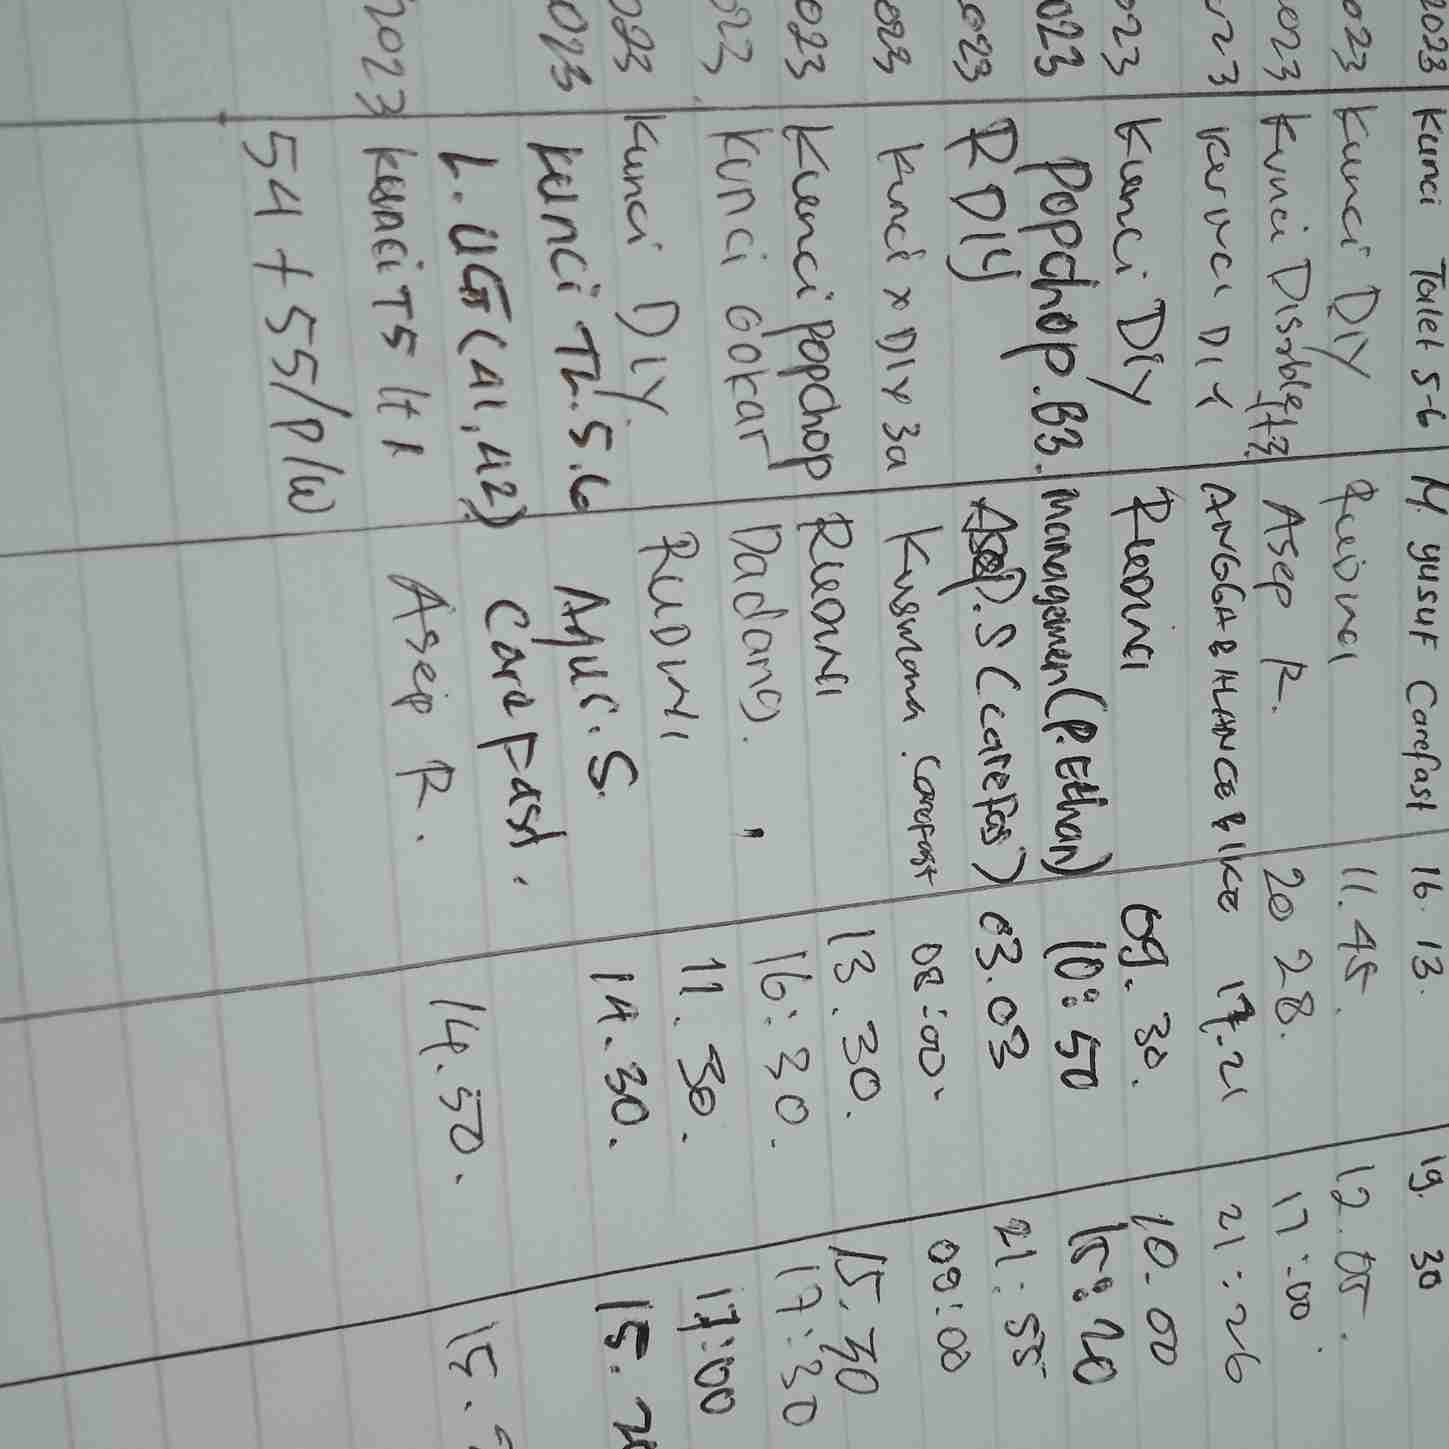 2023 Kunci Toilet 5-6 M. yusuf Carefast 16.13. 19.30
023 Kunci DIY Rudini 11.45. 12.05.
2023 Kunci Disable lt 3. Asep R. 20 28. 17:00
23 Kunci DIY ANGGA BALANCE BIKE 17.21 21:26
023 Kunci DIY RUDINI 09.30. 10.00
023 Popchop.B3. Management (P.Ethan) 10:50 15:20
2023 R DIY Asep.S (Carefas) 03.03 21:55
023 Kunci x DIY 3a Kusmana. Carefast 08:00. 09:00
023 Kunci popchop RUDINI 13.30. 15.30
023 Kunci Gokar Dadang. 16:30. 17:30
023 Kunci DIY. RUDINI 11.30. 17:00
023 Kunci TL.5.6 Agus.S. 14.30. 15.20
L.UG (41,42) Carefast.
2023 Kunci TS lt 1 Asep R. 14.50. 15.
54 + 55/P/W